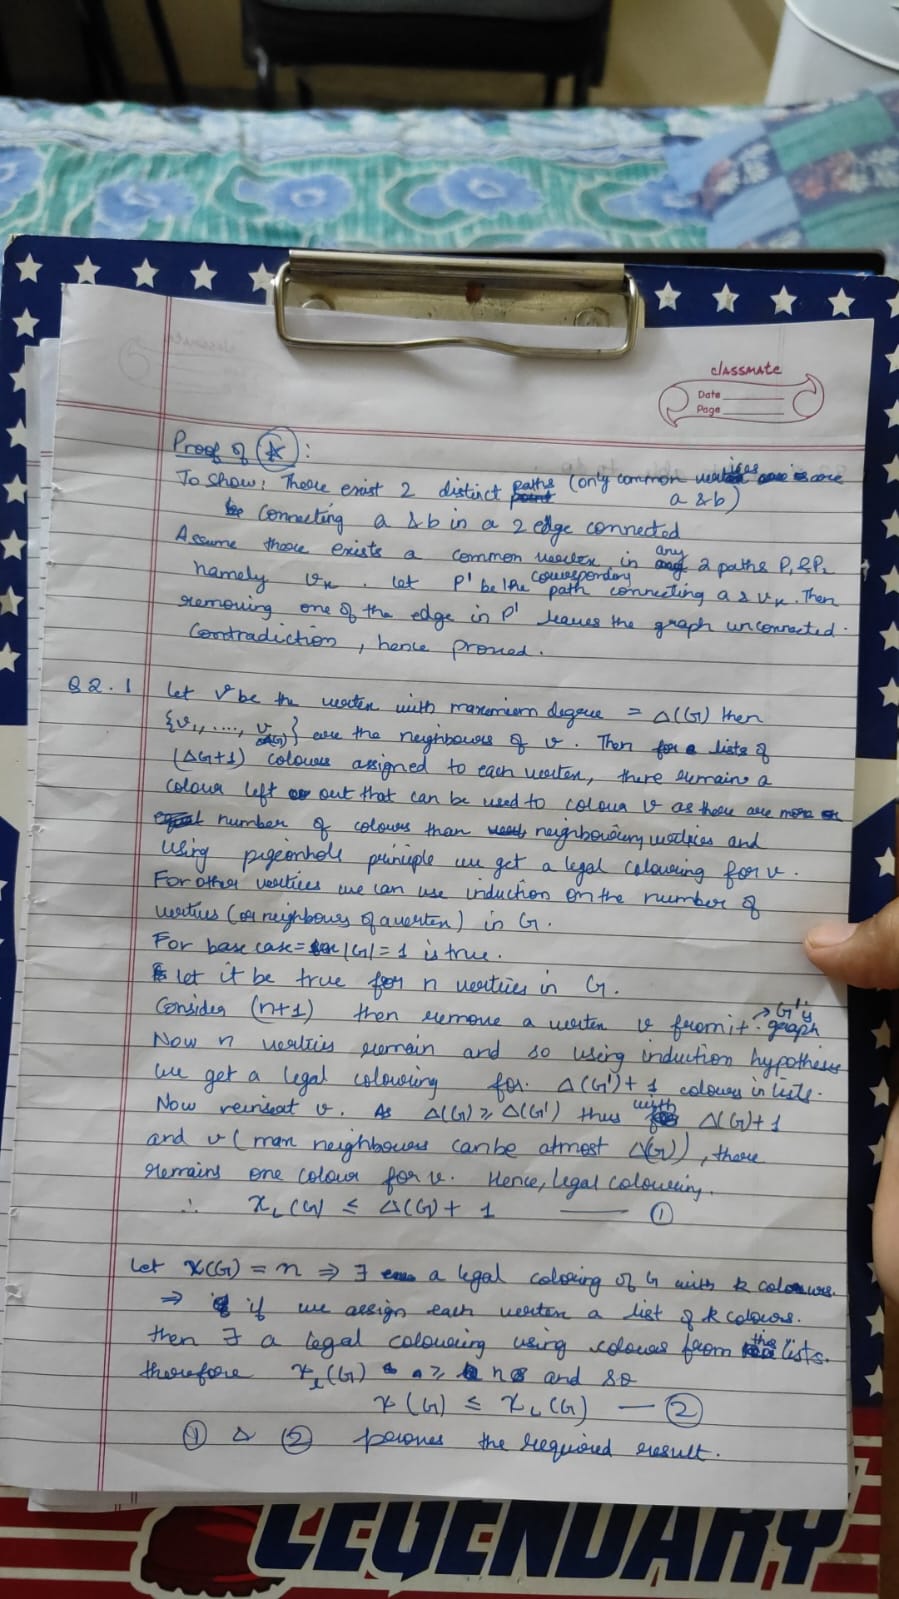 classmate
Date
Page
Proof of (*):
To show: There exist 2 distinct paths (only common vertices are a & b)
connecting a & b in a 2 edge connected
Assume there exists a common vertex in any 2 paths P1 & P2
namely vk. Let P' be the corresponding path connecting a & vk. Then
removing one of the edge in P' leaves the graph unconnected.
Contradiction, hence proved.
Q2.1 Let v be the vertex with maximum degree = Δ(G) then
{v1, ...., vΔ(G)} are the neighbours of v. Then for lists of
(ΔG+1) colours assigned to each vertex, there remains a
colour left out that can be used to colour v as there are more
number of colours than neighbouring vertices and
Using pigeonhole principle we get a legal colouring for v.
For other vertices we can use induction on the number of
vertices (or neighbours of a vertex) in G.
For base case = |G| = 1 is true.
let it be true for n vertices in G.
Consider (n+1) then remove a vertex v from it. → G' is graph
Now n vertices remain and so using induction hypothesis
we get a legal colouring for Δ(G')+1 colours in lists.
Now reinsert v. As Δ(G) ≥ Δ(G') thus with Δ(G)+1
and v (max neighbours can be atmost Δ(G)), there
remains one colour for v. Hence, legal colouring.
∴ χL(G) ≤ Δ(G)+1 —— ①
Let χ(G) = n ⇒ ∃ a legal coloring of G with k colours.
⇒ if we assign each vertex a list of k colours.
then ∃ a legal colouring using colours from the lists.
therefore χL(G) ≥ n and so
χ(G) ≤ χL(G) — ②
① & ② proves the required result.
LEGENDARY